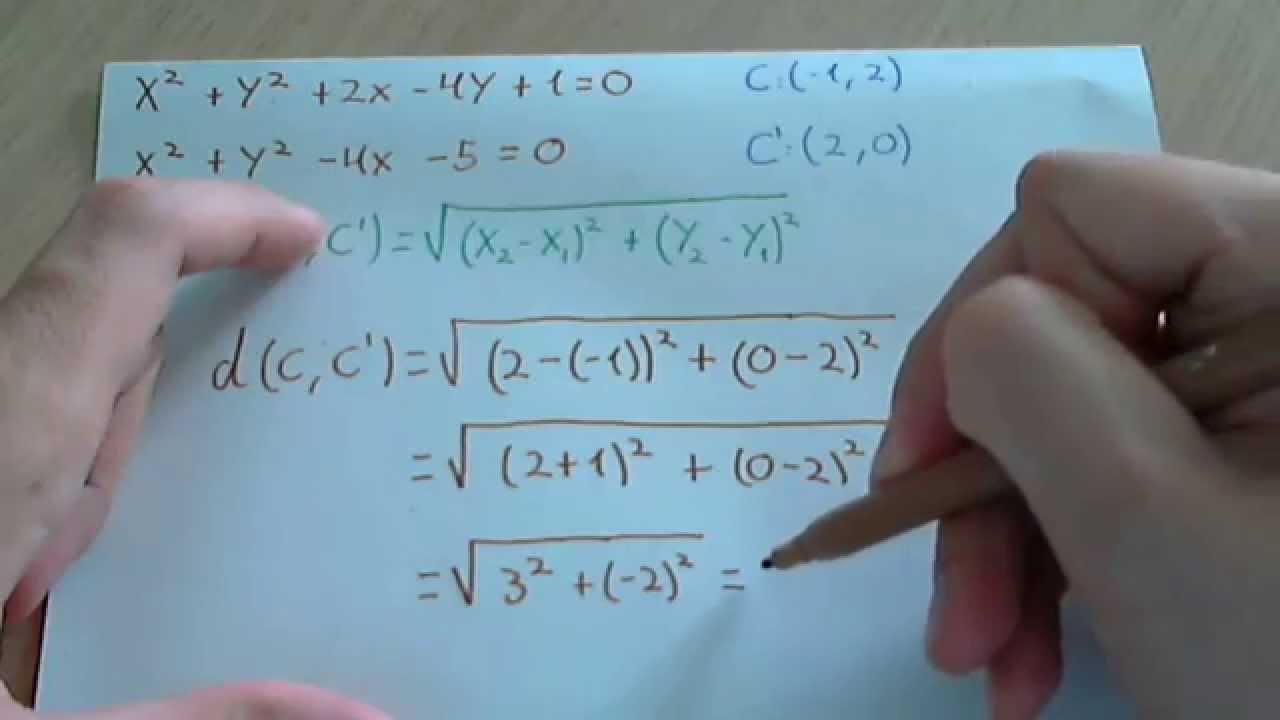 x² + y² + 2x - 4y + 1 = 0 C:(-1, 2)
x² + y² - 4x - 5 = 0 C':(2, 0)
, C') = √(x₂ - x₁)² + (y₂ - y₁)²
d(C, C') = √(2 - (-1))² + (0 - 2)²
= √(2 + 1)² + (0 - 2)²
= √3² + (-2)² =